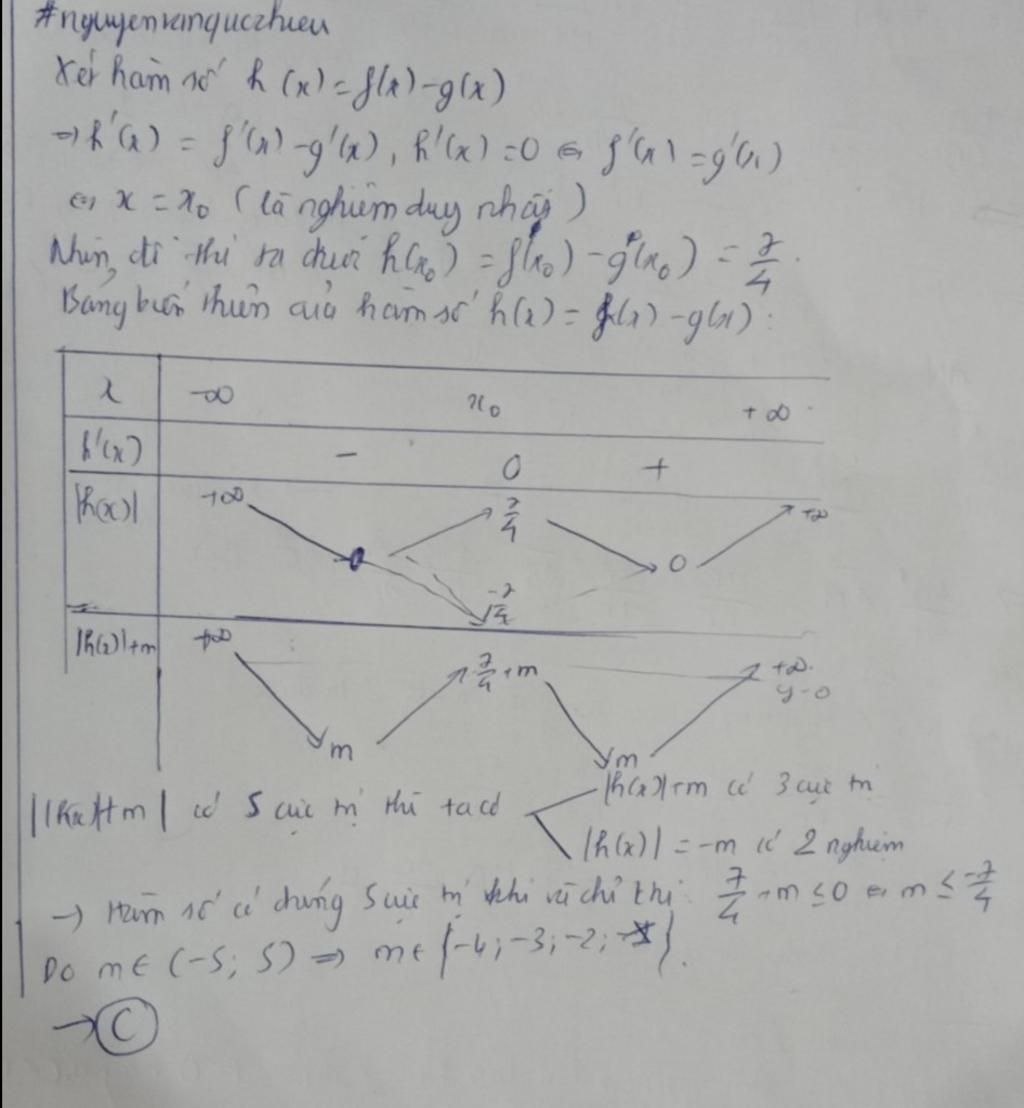 #nguyenvanquocchieu
Xét hàm số h(x) = f(x) - g(x)
⇒ h'(x) = f'(x) - g'(x), h'(x) = 0 ⇔ f'(x) = g'(x)
⇔ x = x₀ (là nghiệm duy nhất)
Nhìn đồ thị ta được h(x₀) = f(x₀) - g(x₀) = 7/4.
Bảng biến thiên của hàm số h(x) = f(x) - g(x):
x -∞ x₀ +∞
h'(x) - 0 +
|h(x)| +∞ 0 7/4 0 +∞
-7/4
|h(x)|+m +∞ m 7/4+m m +∞
y=0
||h(x)|+m| có 5 cực trị thì ta có
|h(x)|+m có 3 cực trị
|h(x)| = -m có 2 nghiệm
→ Hàm số có đúng 5 cực trị khi và chỉ khi 7/4+m ≤ 0 ⇔ m ≤ -7/4
Do m ∈ (-5; 5) ⇒ m ∈ {-4; -3; -2; }.
→ C